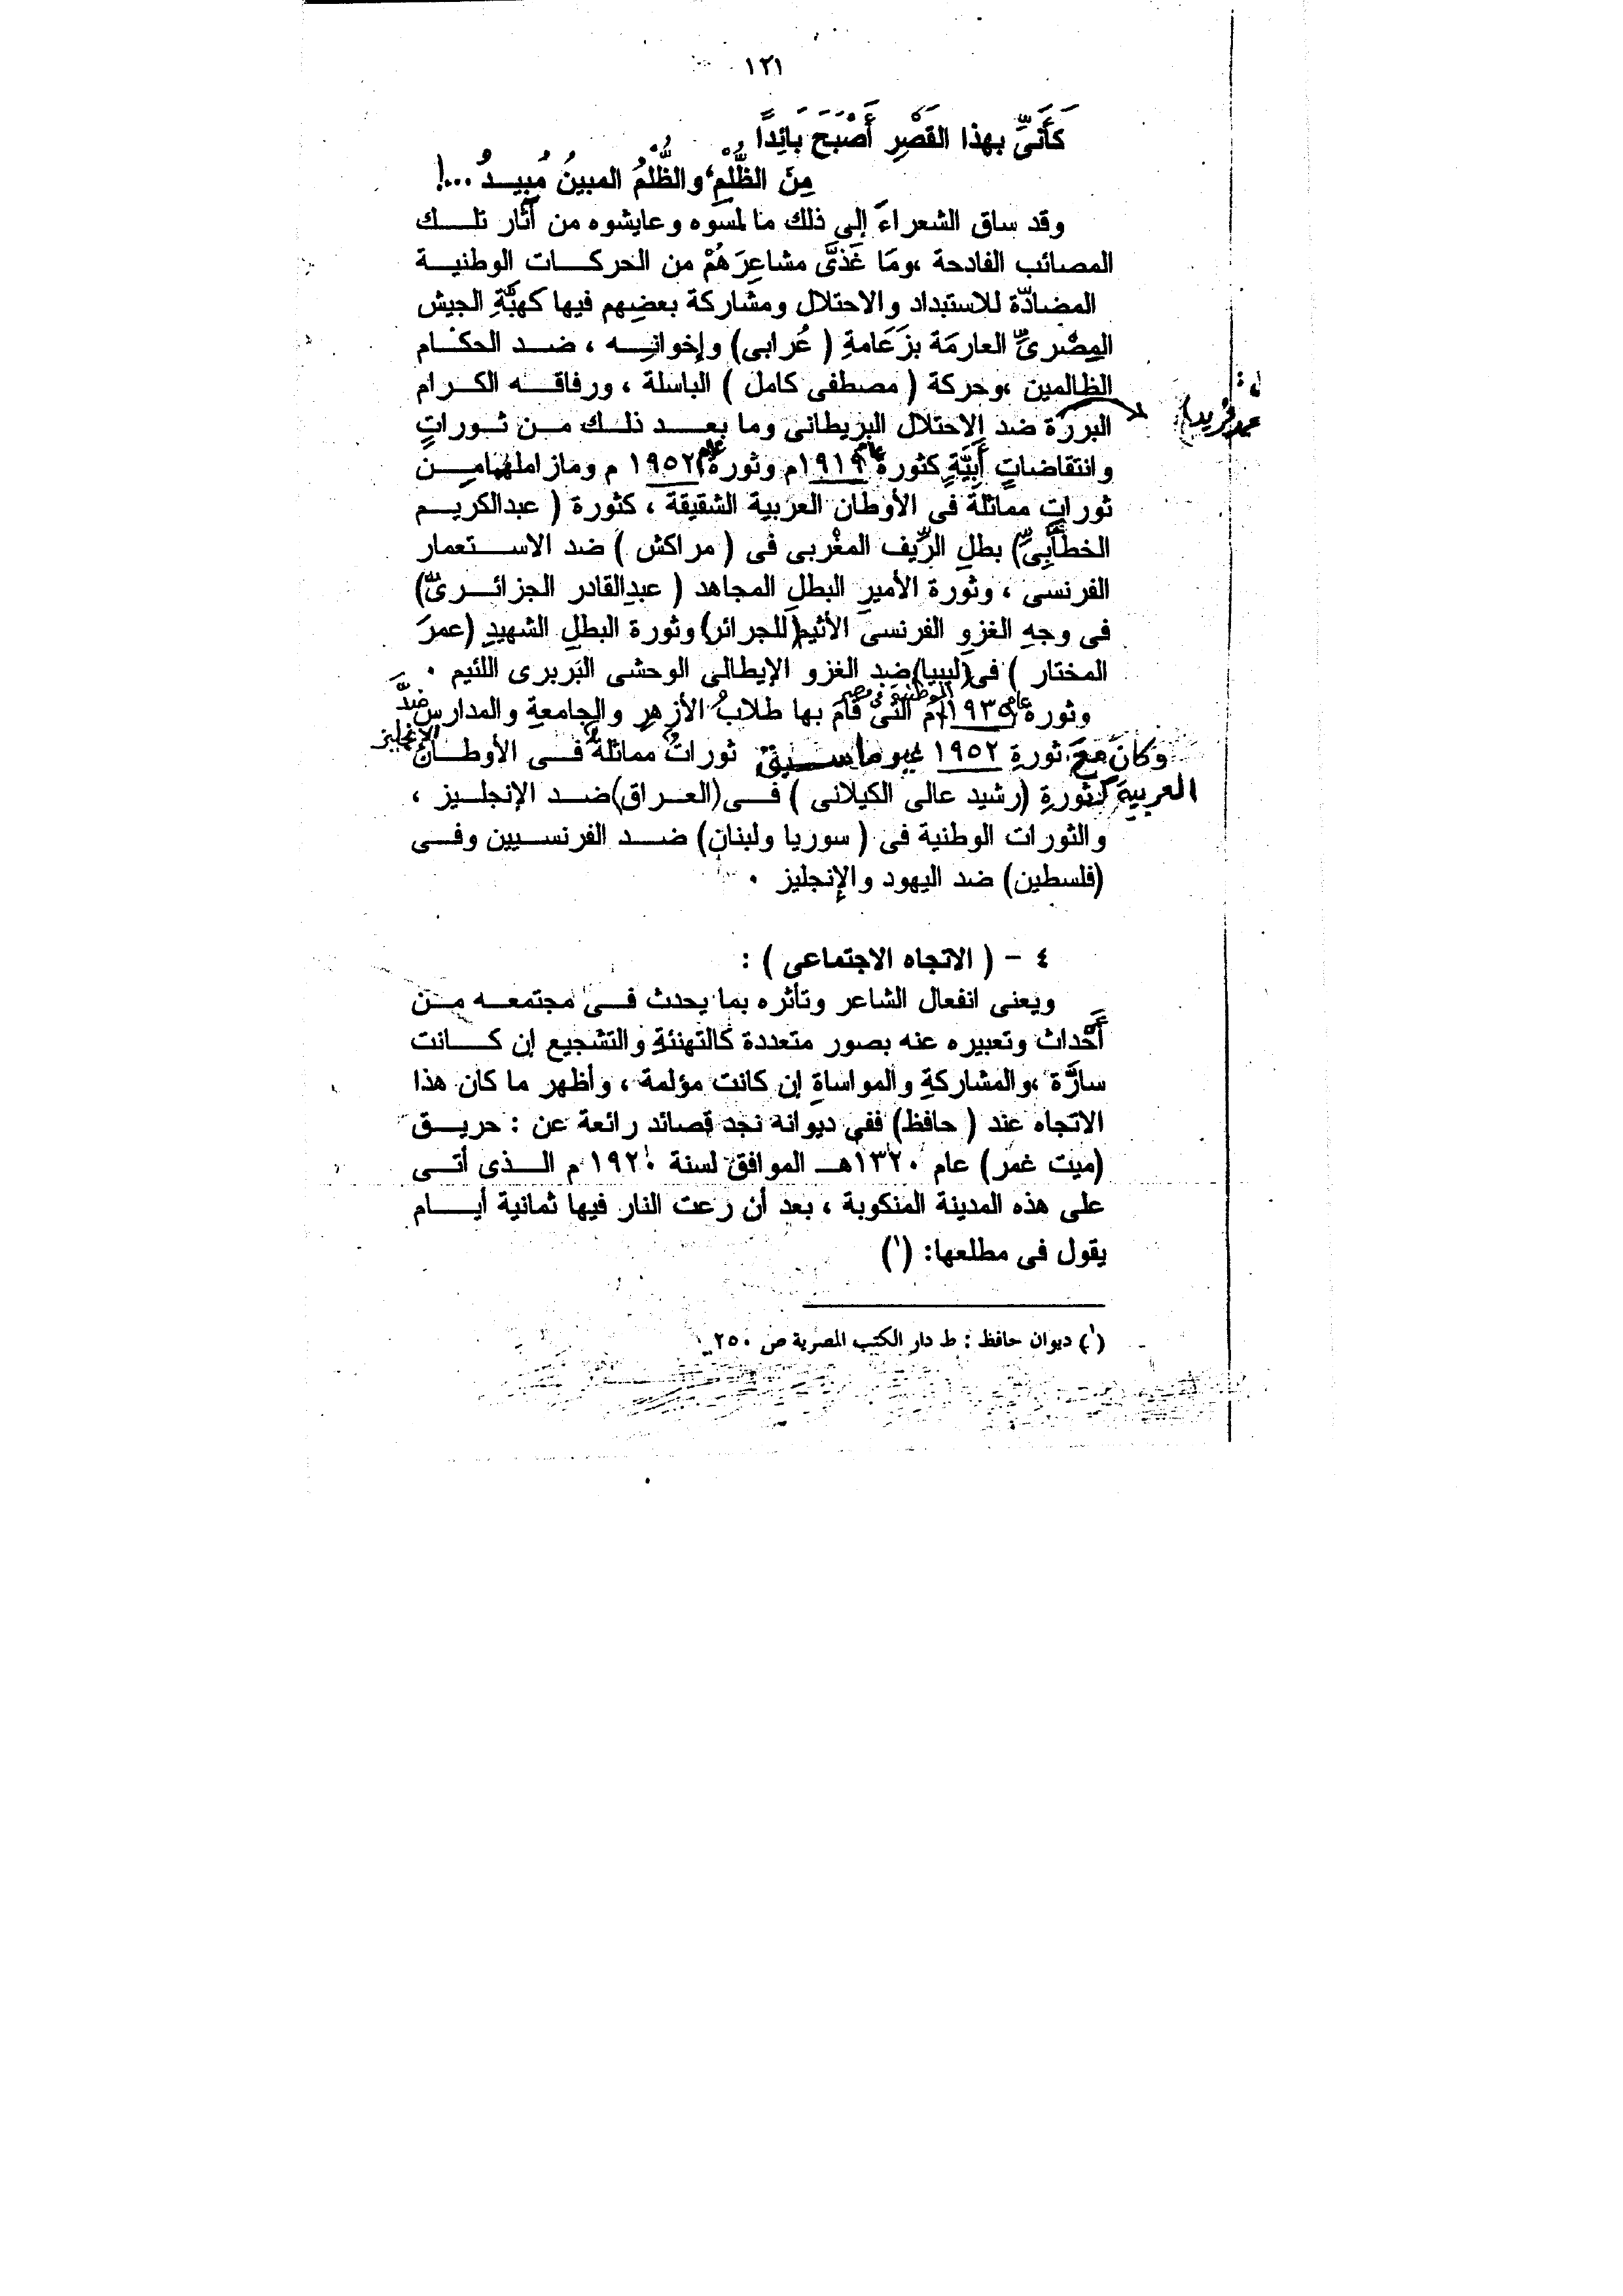 ١٢١
كَأَنِّىَ بهذا القَصْرِ أَصْبَحَ بَائِدًا
مِنَ الظُّلْمِ، والظُّلْمُ المبينُ مُبِيـدُ ...!
وقد ساق الشعراءَ إلى ذلك ما لمسوه وعايشوه من آثار تلـــك
المصائب الفادحة ،ومَا غَذىَّ مشاعِرَهُمْ من الحركــات الوطنيــة
المضادّة للاستبداد والاحتلال ومشاركة بعضِهم فيها كهبَّةِ الجيش
المِصْرىِّ العارمَة بزَعَامةِ ( عُرابى) وإخوانِــه ، ضــد الحكــام
الظالمين ،وحركة ( مصطفى كامل ) الباسلة ، ورفاقــه الكــرام
محمد فريد)
البررة ضد الاحتلال البريطانى وما بعــد ذلــك مــن ثــوراتٍ
وانتقاضاتٍ أَبِيَّةٍ كثورة عام ١٩١٩م وثورة عام ١٩٥٢ م ومازاملهمامِــن
ثوراتٍ مماثلة فى الأوطان العربية الشقيقة ، كثورة ( عبدالكريــم
الخطَّابِىِّ) بطلِ الرِّيف المغْربى فى ( مراكش ) ضد الاســتعمار
الفرنسى ، وثورة الأميرِ البطلِ المجاهد ( عبدِالقادر الجزائــرىِّ)
فى وجهِ الغزوِ الفرنسى الأثيم(للجرائر) وثورة البطلِ الشهيدِ (عمرَ
المختار ) فى(ليبيا)ضد الغزو الإيطالى الوحشى البَربرى اللئيم ٠
وثورة عام ١٩٣٥م الوطنية فى مصر التى قامَ بها طلابُ الأزهرِ والجامعةِ والمدارس ضدَّ الإنجليز
وكانَ معَ ثورةِ ١٩٥٢ غير ما سبق ثوراتٌ مماثلةٌ فــى الأوطــان
العربية كثورةِ (رشيد عالى الكيلانى ) فــى(العــراق)ضــد الإنجلــيز ،
والثورات الوطنية فى ( سوريا ولبنان) ضــد الفرنســيين وفــى
(فلسطين) ضد اليهود والإنجليز ٠
٤ - ( الاتجاه الاجتماعى ) :
ويعنى انفعال الشاعر وتأثره بما يحدث فــى مجتمعــه مــن
أَحْداث وتعبيره عنه بصور متعددة كالتهنئةِ والتشجيع إن كــــانت
سارَّة ،والمشاركةِ والمواساةِ إن كانت مؤلمة ، وأظهر ما كان هذا
الاتجاه عند ( حافظ) ففى ديوانه نجد قصائد رائعة عن : حريــق
(ميت غمر) عام ١٣٢٠هــ الموافق لسنة ١٩٢٠ م الــذى أتــى
على هذه المدينة المنكوبة ، بعد أن رعت النار فيها ثمانية أيــام
يقول فى مطلعها: (١)
(١) ديوان حافظ : ط دار الكتب المصرية ص ٢٥٠